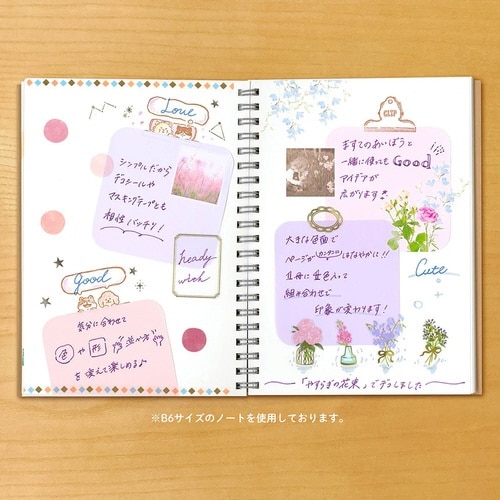 Love
シンプルだから
デコシールや
マスキングテープとも
相性バッチリ!
heady
wish
Good
気分に合わせて
色や形 並べ方
を変えて楽しめる♪
CLIP
ますてのあいぼうと
一緒に使っても Good
アイデアが
広がります!!
大きな色面で
ページがカンタンにはなやかに!!
1冊に 色入って
組み合わせで
印象が変わります!
Cute
「やすらぎの花束」でデコしました
※B6サイズのノートを使用しております。